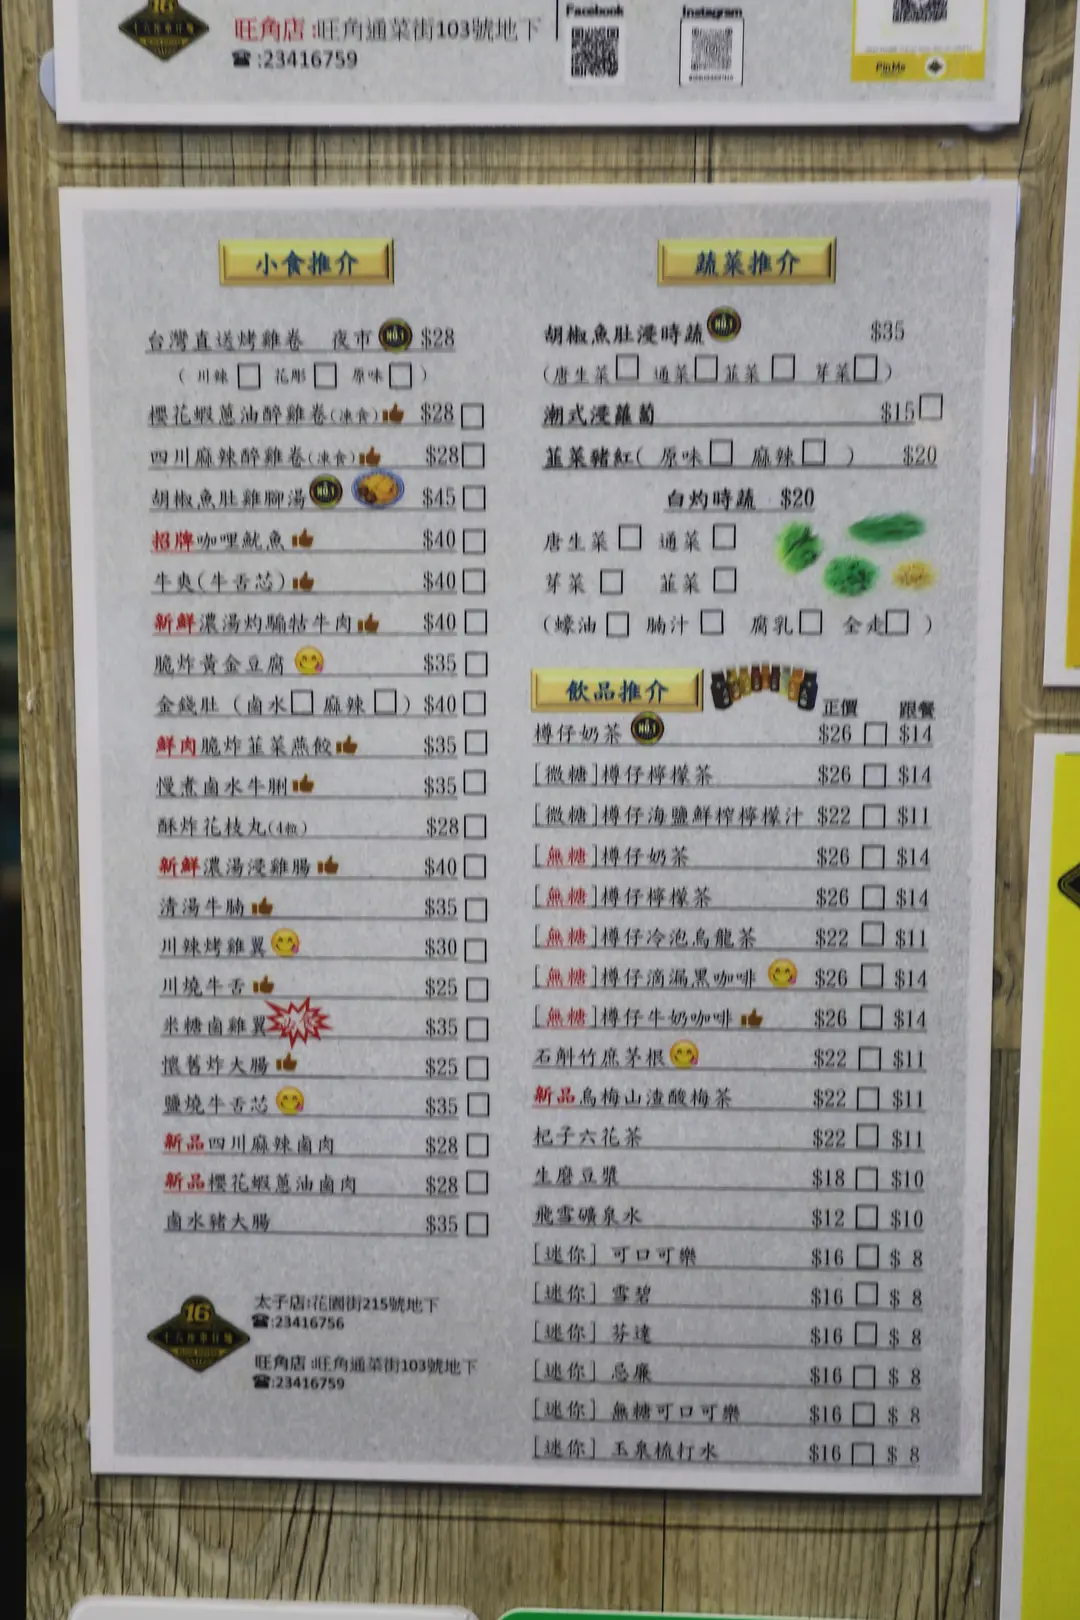 16
旺角店:旺角通菜街103號地下
☎:23416759
Facebook
Instagram
PinMe
小食推介
台灣直送烤雞卷 夜市 NO.1 $28
(川辣□ 花彫□ 原味□)
櫻花蝦蔥油醉雞卷(凍食) $28□
四川麻辣醉雞卷(凍食) $28□
胡椒魚肚雞腳湯 NO.1 $45□
招牌咖哩魷魚 $40□
牛爽(牛舌芯) $40□
新鮮濃湯灼騸牯牛肉 $40□
脆炸黃金豆腐 $35□
金錢肚(鹵水□ 麻辣□) $40□
鮮肉脆炸韮菜燕餃 $35□
慢煮鹵水牛脷 $35□
酥炸花枝丸(4粒) $28□
新鮮濃湯浸雞腸 $40□
清湯牛腩 $35□
川辣烤雞翼 $30□
川燒牛舌 $25□
米糖鹵雞翼 $35□
懷舊炸大腸 $25□
鹽燒牛舌芯 $35□
新品四川麻辣鹵肉 $28□
新品櫻花蝦蔥油鹵肉 $28□
鹵水豬大腸 $35□
16
十六座車仔麵
太子店:花園街215號地下
☎:23416756
旺角店:旺角通菜街103號地下
☎:23416759
蔬菜推介
胡椒魚肚浸時蔬 NO.1 $35
(唐生菜□ 通菜□韮菜□ 芽菜□)
潮式浸蘿蔔 $15□
韮菜豬紅(原味□ 麻辣□) $20
白灼時蔬 $20
唐生菜□ 通菜□
芽菜□ 韮菜□
(蠔油□ 腩汁□ 腐乳□ 全走□)
飲品推介
正價 跟餐
樽仔奶茶 NO.1 $26□$14
[微糖]樽仔檸檬茶 $26□$14
[微糖]樽仔海鹽鮮榨檸檬汁 $22□$11
[無糖]樽仔奶茶 $26□$14
[無糖]樽仔檸檬茶 $26□$14
[無糖]樽仔冷泡烏龍茶 $22□$11
[無糖]樽仔滴漏黑咖啡 $26□$14
[無糖]樽仔牛奶咖啡 $26□$14
石斛竹庶茅根 $22□$11
新品烏梅山渣酸梅茶 $22□$11
杞子六花茶 $22□$11
生磨豆漿 $18□$10
飛雪礦泉水 $12□$10
[迷你] 可口可樂 $16□$ 8
[迷你] 雪碧 $16□$ 8
[迷你] 芬達 $16□$ 8
[迷你] 忌廉 $16□$ 8
[迷你] 無糖可口可樂 $16□$ 8
[迷你] 玉泉梳打水 $16□$ 8